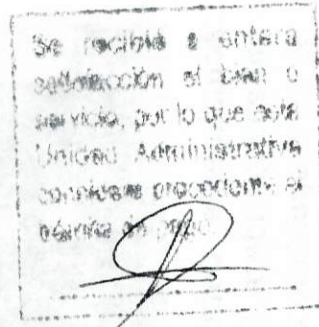 Se recibió a entera
satisfacción el bien o
servicio, por lo que esta
Unidad Administrativa
considera procedente el
trámite de pago